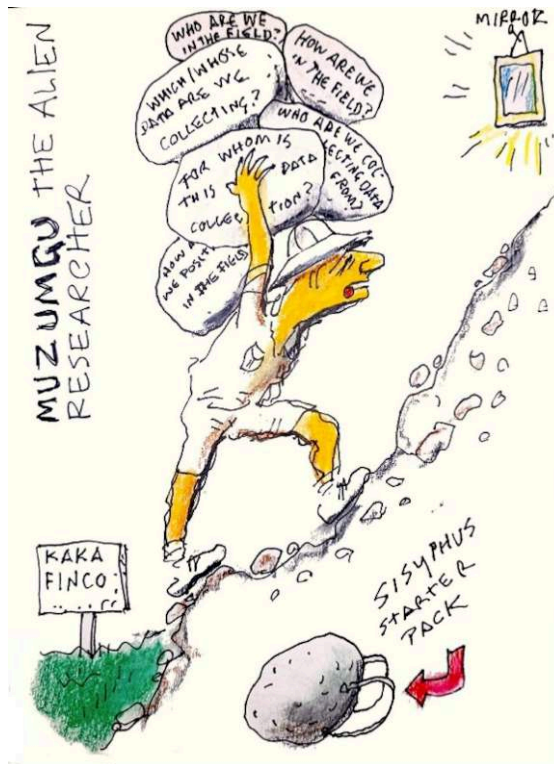 MUZUMGU THE ALIEN
RESEARCHER
MIRROR
WHO ARE WE
IN THE FIELD?
HOW ARE WE
IN THE FIELD?
WHICH/WHOSE
DATA ARE WE
COLLECTING?
WHO ARE WE COL-
LECTING DATA
FROM?
FOR WHOM IS
THIS DATA
COLLECTION?
HOW A
WE POSIT
IN THE FIELD
KAKA
FINCO
SISYPHUS
STARTER
PACK